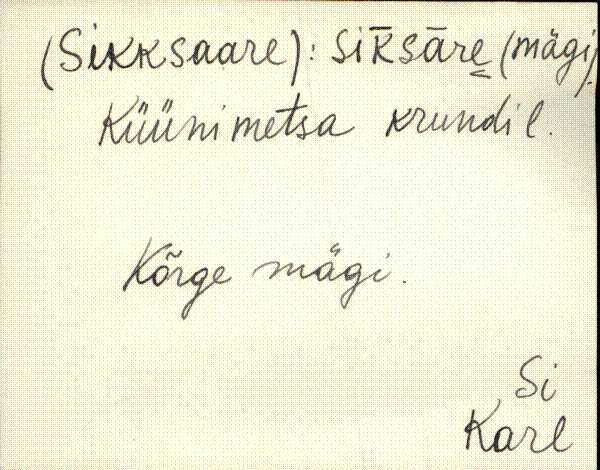 (Sikksaare): sik̄sāre̳ (mägi).
Küünimetsa krundil.
Kõrge mägi.
Si
Karl